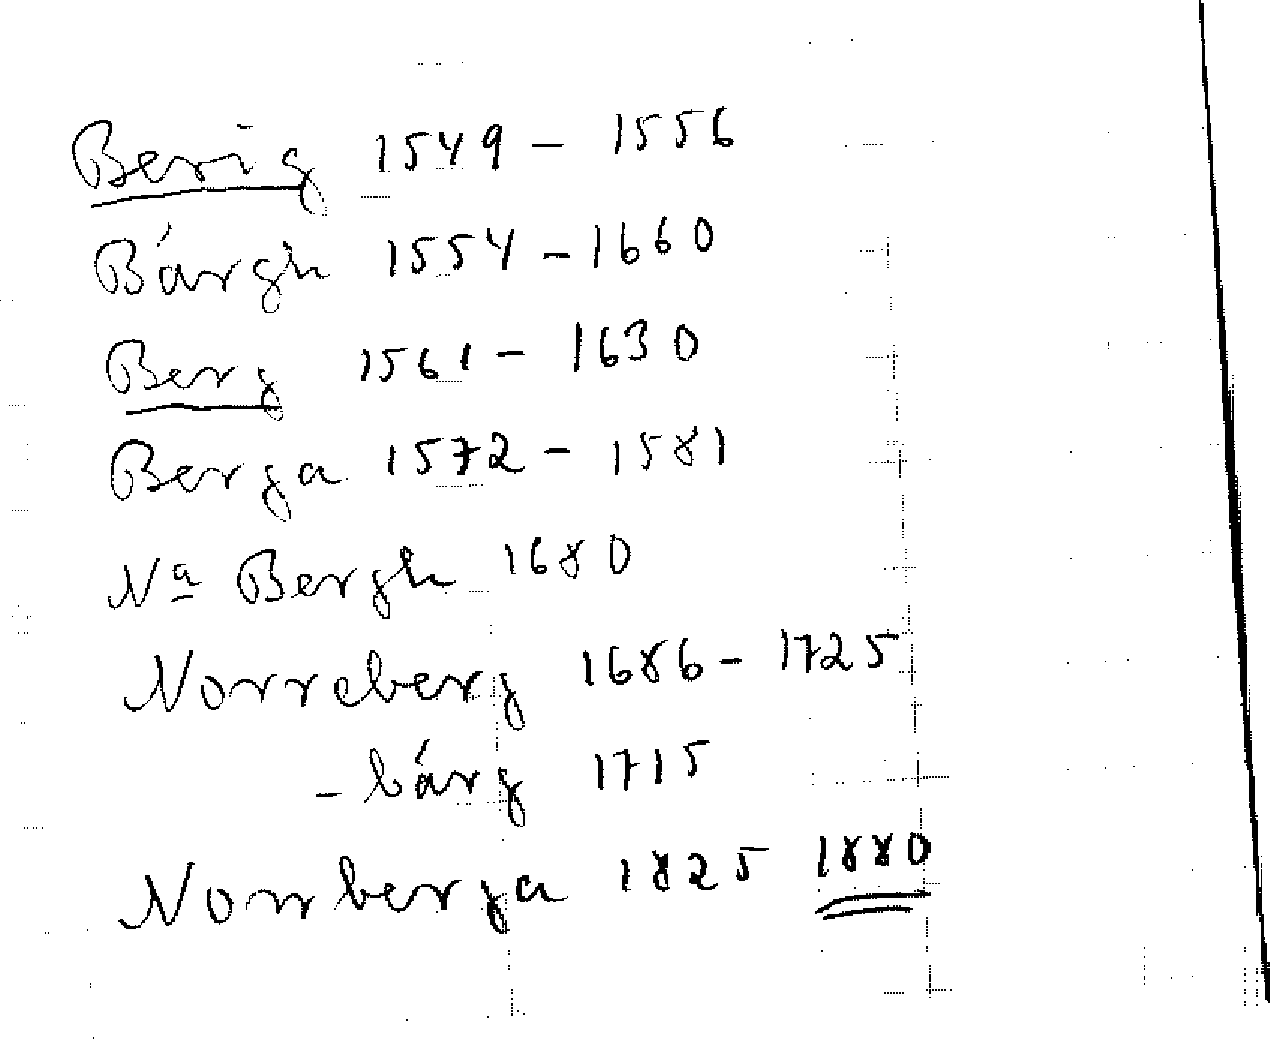 Berig 1549 - 1556
Bárgh 1554 - 1660
Berg 1561 - 1630
Berga 1572 - 1581
Na Bergh 1680
Norreberg 1686 - 1725
- bárg 1715
Norrberga 1825 1880